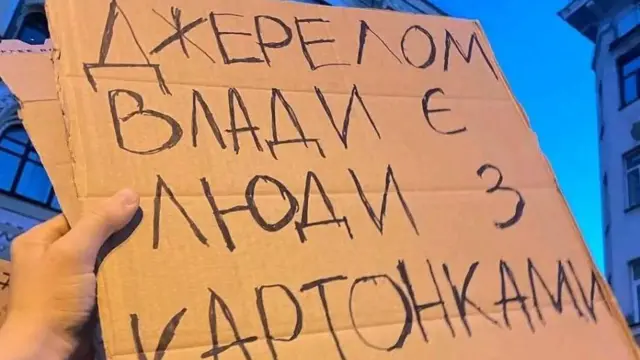 ДЖЕРЕЛОМ
ВЛАДИ Є
ЛЮДИ З
КАРТОНКАМИ